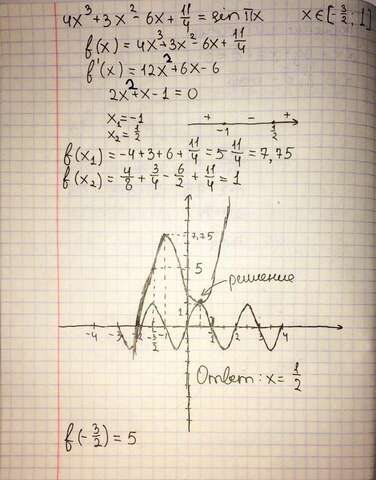 4x³+3x²-6x+11/4 = sin πx   x∈[3/2; 1]
f(x) = 4x³+3x²-6x+11/4
f'(x) = 12x²+6x-6
2x²+x-1=0
x₁=-1
x₂=1/2
+ - +
-1 1/2
f(x₁) = -4+3+6+11/4 = 5 11/4 = 7,75
f(x₂) = 4/8+3/4-6/2+11/4 = 1
7,75
5
решение
1
-4 -3 -2 -3/2 -1 1 2 3 4
Ответ: x = 1/2
f(-3/2) = 5